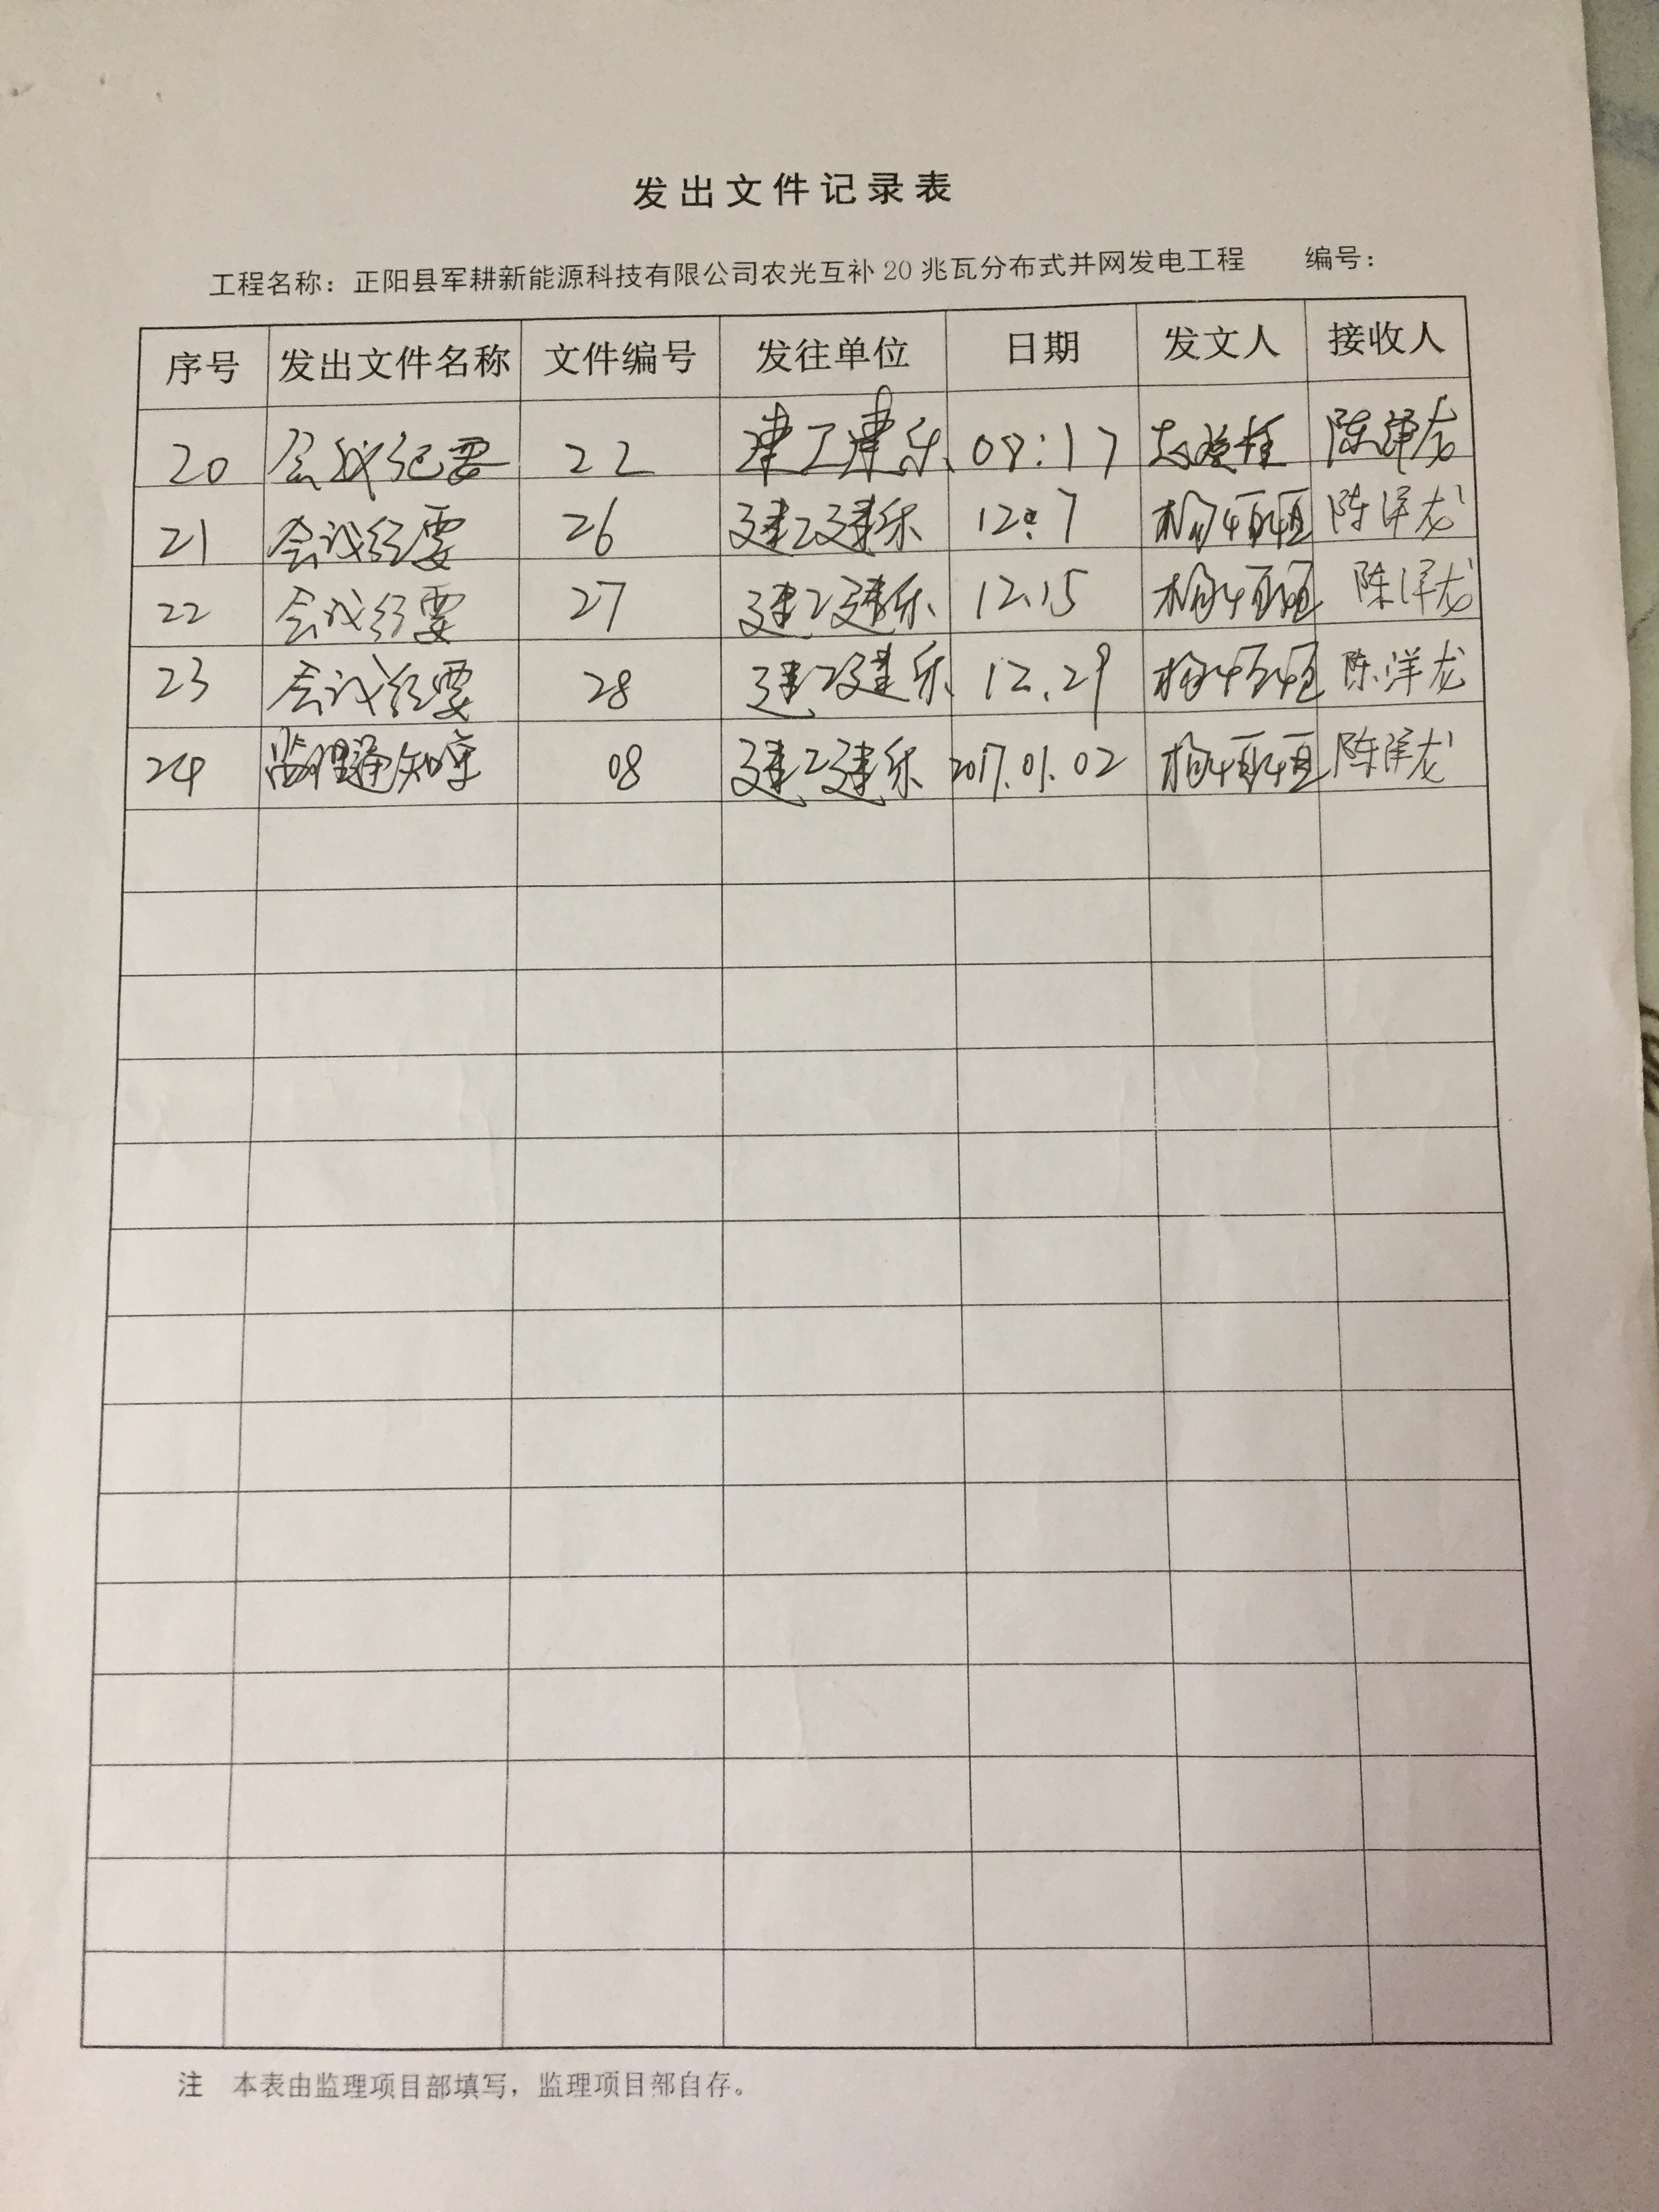 发出文件记录表
工程名称：正阳县军耕新能源科技有限公司农光互补20兆瓦分布式并网发电工程 编号：
序号 发出文件名称 文件编号 发往单位 日期 发文人 接收人
20 会议纪要 22 建工建乐 08:17 陈洋龙
21 会议纪要 26 建工建乐 12:7 陈洋龙
22 会议纪要 27 建工建乐 12.15 陈洋龙
23 会议纪要 28 建工建乐 12.29 陈洋龙
24 监理通知单 08 建工建乐 2017.01.02 陈洋龙
注 本表由监理项目部填写，监理项目部自存。